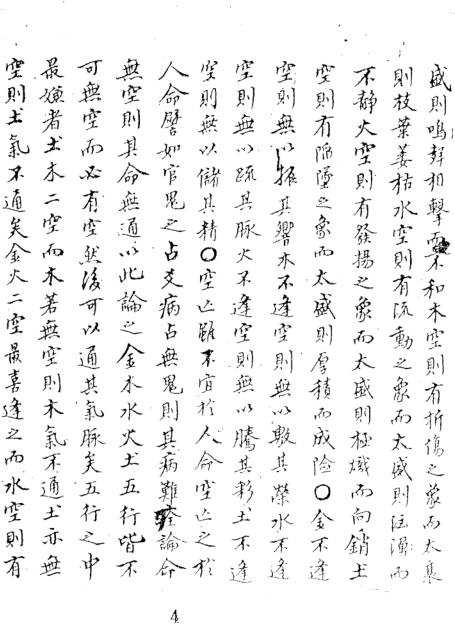 盛則鳴群相擊而不和木空則有折傷之象而太衰
則枝葉萎枯水空則有流動之象而太盛則汪濊而
不靜火空則有發揚之象而太盛則極熾而向銷土
空則有陷墜之象而太盛則厚積而成險〇金不逢
空則無以振其響木不逢空則無以敷其榮水不逢
空則無以疏其脉火不逢空則無以騰其彩土不逢
空則無以儲其精〇空亡雖不宜於人命空亡之於
人命譬如官鬼之占爻病占無鬼則其病難痊論命
無空則其命無通以此論之金木水火土五行皆不
可無空而必有空然後可以通其氣脉矣五行之中
最嫌者土木二空而木若無空則木氣不通土亦無
空則土氣不通矣金火二空最喜逢之而水空則有
4